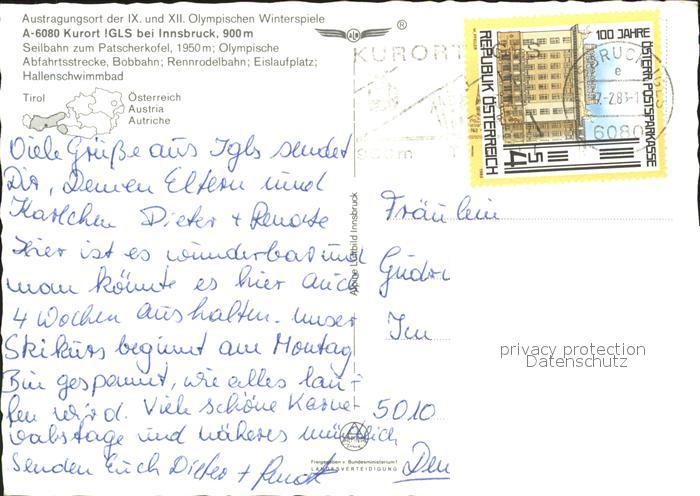 Austragungsort der IX. und XII. Olympischen Winterspiele
A-6080 Kurort IGLS bei Innsbruck, 900 m
Seilbahn zum Patscherkofel, 1950 m; Olympische
Abfahrtsstrecke, Bobbahn; Rennrodelbahn; Eislaufplatz;
Hallenschwimmbad
Tirol
Österreich
Austria
Autriche
®
KURORT
100 JAHRE
ÖSTERR. POSTSPARKASSE
REPUBLIK ÖSTERREICH
S 4
6080
Viele Grüße aus Igls sendet
Dir, Deinen Eltern und
Karlchen Dieter + Renate
Hier ist es wunderbar und
man könnte es hier auch
4 Wochen aushalten. Unser
Skikurs beginnt am Montag
Bin gespannt, wie alles lau-
fen wird. Viele schöne Karne-
valstage und näheres mündlich
senden Euch Dieter + Renate
Alpine Luftbild Innsbruck
Freigegeben v. Bundesministerium f.
LANDESVERTEIDIGUNG
Fräulein
Gudru
Im
5010
privacy protection
Datenschutz